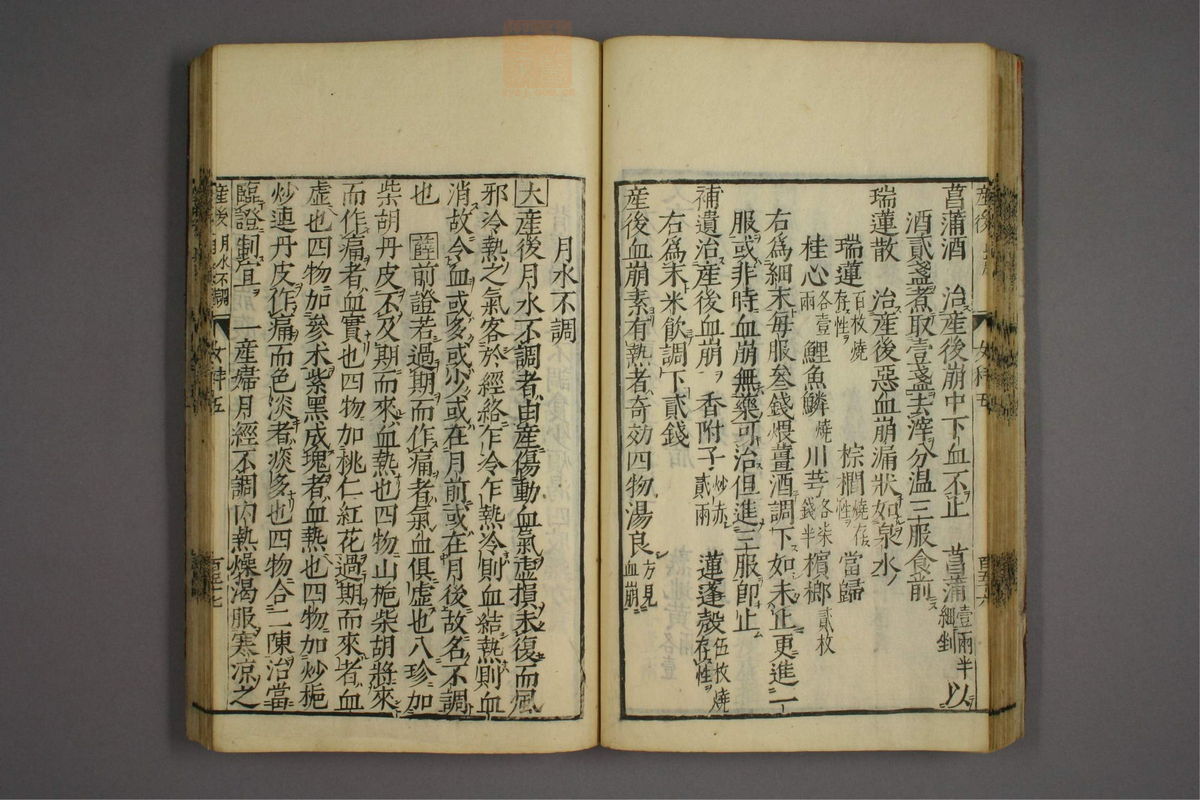 菖蒲酒 治産後崩中下血不止 菖蒲壹兩半細剉以
酒貳盞煮取壹盞去滓分温三服食前
瑞蓮散 治産後惡血崩漏狀如泉水
瑞蓮百枚燒存性 棕櫚燒存性 當歸
桂心各壹兩 鯉魚鱗燒 川芎各柒錢半 檳榔貳枚
右爲細末毎服叁錢煨薑酒調下如未止更進一
服或非時血崩無藥可治但進三服即止
補遺治産後血崩 香附子炒赤貳兩 蓮蓬殼伍枚燒存性
右爲末米飲調下貳錢
産後血崩素有熱者奇効四物湯良方見血崩
産後 女科五 百五十六
月水不調
大産後月水不調者由産傷動血氣虚損未復而風
邪冷熱之氣客於經絡乍冷乍熱冷則血結熱則血
消故令血或多或少或在月前或在月後故名不調
也 薛前證若過期而作痛者氣血俱虚也八珍加
柴胡丹皮不及期而來血熱也四物山梔柴胡將來
而作痛者血實也四物加桃仁紅花過期而來者血
虚也四物加參朮紫黑成瑰者血熱也四物加炒梔
炒連丹皮作痛而色淡者痰多也四物合二陳治當
臨證制宜 一産婦月經不調内熱燥渴服寒凉之
産後 月水不調 女科五 百五十七